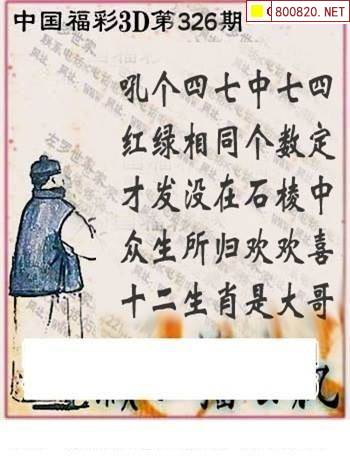 中国福彩3D第326期
800820.NET
吼个四七中七四
红绿相同个数定
才发没在石棱中
众生所归欢欢喜
十二生肖是大哥